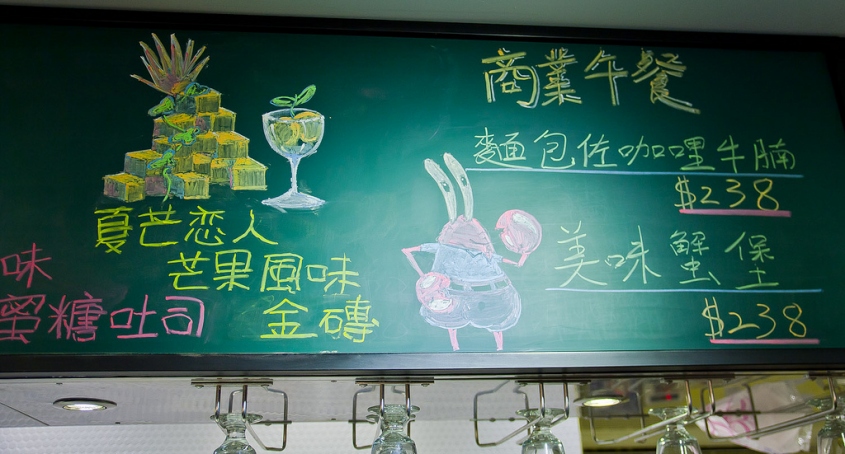 夏芒恋人
芒果風味
金磚
味
蜜糖吐司
商業午餐
麵包佐咖哩牛腩
$238
美味蟹堡
$238